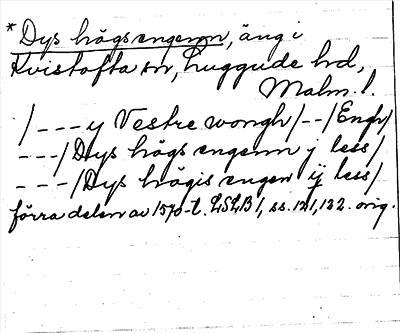 * Dys högsengenn, äng i
Kvistofta sn, Luggude hd,
Malm. l.
/--- y Vestre wongh/--/Engh/
---/Dys högs engenn j less/
---/Dys högis engen ij less/
förra delen av 1570-t. LSLB 1, ss. 121, 132. orig.